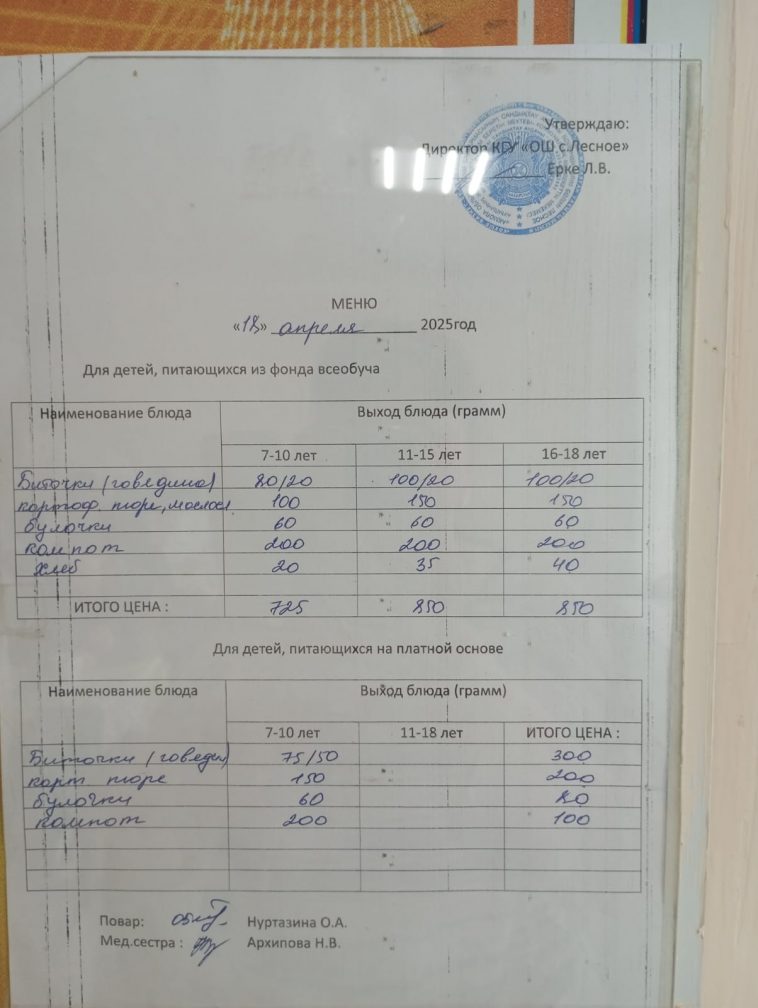 Утверждаю:
Директор КГУ «ОШ с.Лесное»
Ерке Л.В.
МЕНЮ
«18» апреля 2025год
Для детей, питающихся из фонда всеобуча
Наименование блюда Выход блюда (грамм)
7-10 лет 11-15 лет 16-18 лет
Биточки (говядина) 80/20 100/20 100/20
картоф. пюре, масло 100 150 150
булочки 60 60 60
компот 200 200 200
хлеб 20 35 40
ИТОГО ЦЕНА : 725 850 850
Для детей, питающихся на платной основе
Наименование блюда Выход блюда (грамм)
7-10 лет 11-18 лет ИТОГО ЦЕНА :
Биточки (говядин) 75/50 300
карт пюре 150 200
булочки 60 80
компот 200 100
Повар: Нуртазина О.А.
Мед.сестра : Архипова Н.В.